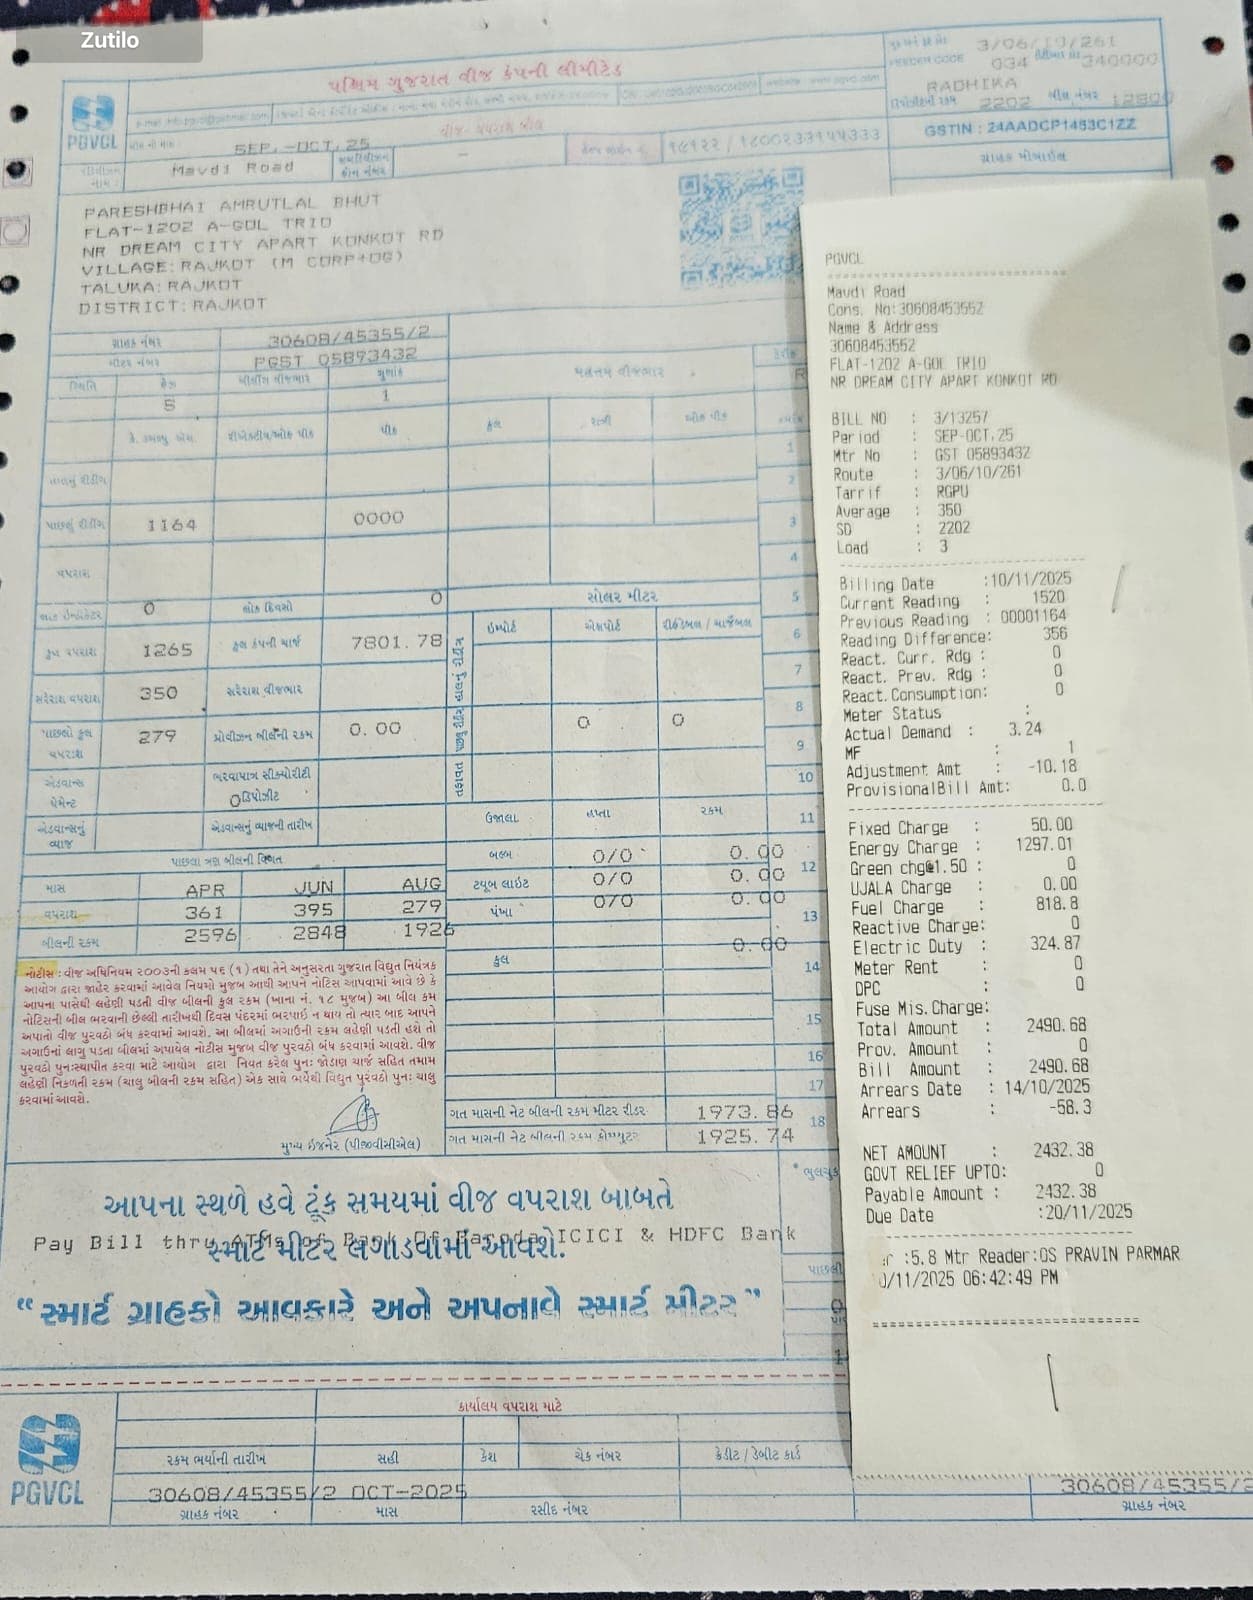 Zutilo
પશ્ચિમ ગુજરાત વીજ કંપની લીમીટેડ
PGVCL
વીજ-વપરાશ બીલ
SEP.-OCT.25
Mavdi Road
૧૯૧૨૨ / ૧૮૦૦૨૩૩૧૫૫૩૩૩
3/06/10/261
FEEDER CODE 034 340000
RADHIKA
2202 બીલ નંબર
GSTIN : 24AADCP1453C1ZZ
ગ્રાહક મોબાઈલ
PARESHBHAI AMRUTLAL BHUT
FLAT-1202 A-GOL TRIO
NR DREAM CITY APART KONKOT RD
VILLAGE: RAJKOT (M CORP+OG)
TALUKA: RAJKOT
DISTRICT: RAJKOT
ગ્રાહક નંબર 30608/45355/2
મીટર નંબર PGST 05893432
સ્થિતિ ફેઝ ગુણાંક
S 1
મહત્તમ વીજભાર
કુલ રાત્રી ઓફ પીક
પીક
પાછલું રીડીંગ 1164 0000
વપરાશ
0 લોક દિવસો 0
કુલ વપરાશ 1265 કુલ કંપની ચાર્જ 7801.78
સરેરાશ વપરાશ 350 સરેરાશ વીજભાર
પાછલો કુલ વપરાશ 279 પ્રોવીઝન બીલની રકમ 0.00
એડવાન્સ પેમેન્ટ ભરવાપાત્ર સીક્યોરીટી ડિપોઝીટ 0
એડવાન્સનું વ્યાજ એડવાન્સનું વ્યાજની તારીખ
સોલર મીટર
ઇમ્પોર્ટ એક્ષપોર્ટ
0 0
તફાવત
ઉજાલા હપ્તા રકમ
બલ્બ 0/0 0.00
ટયૂબ લાઈટ 0/0 0.00
પંખા 0/0 0.00
કુલ 0.00
પાછલા ત્રણ બીલની વિગત
માસ APR JUN AUG
વપરાશ 361 395 279
બીલની રકમ 2596 2848 1926
1
2
3
4
5
6
7
8
9
10
11
12
13
14
15
16
17
18
નોટીસ : વીજ અધિનિયમ ૨૦૦૩ની કલમ ૫૬ (૧) તથા તેને અનુસરતા ગુજરાત વિદ્યુત નિયંત્રક
આયોગ દ્વારા જાહેર કરવામાં આવેલ નિયમો મુજબ આથી આપને નોટિસ આપવામાં આવે છે કે
આપના પાસેથી લહેણી પડતી વીજ બીલની કુલ રકમ (ખાના નં. ૧૮ મુજબ) આ બીલ કમ
નોટિસની બીલ ભરવાની છેલ્લી તારીખથી દિવસ પંદરમાં ભરપાઈ ન થાય તો ત્યાર બાદ આપને
અપાતો વીજ પુરવઠો બંધ કરવામાં આવશે. આ બીલમાં અગાઉની રકમ લહેણી પડતી હશે તો
અગાઉનાં લાગુ પડતા બીલમાં અપાયેલ નોટીસ મુજબ વીજ પુરવઠો બંધ કરવામાં આવશે. વીજ
પુરવઠો પુનઃસ્થાપીત કરવા માટે આયોગ દ્વારા નિયત કરેલ પુનઃ જોડાણ ચાર્જ સહિત તમામ
લહેણી નિકળતી રકમ (ચાલુ બીલની રકમ સહિત) એક સાથે ભર્યેથી વિદ્યુત પુરવઠો પુનઃ ચાલુ
કરવામાં આવશે.
મુખ્ય ઇજનેર (પીજીવીસીએલ)
ગત માસની નેટ બીલની રકમ મીટર રીડર 1973.86
ગત માસની નેટ બીલની રકમ કોમ્પ્યુટર 1925.74
આપના સ્થળે હવે ટૂંક સમયમાં વીજ વપરાશ બાબતે
Pay Bill thru ATMs of Bank Of Baroda ICICI & HDFC Bank
સ્માર્ટ મીટર લગાડવામાં આવશે.
“સ્માર્ટ ગ્રાહકો આવકારે અને અપનાવે સ્માર્ટ મીટર”
PGVCL
Mavdi Road
Cons. No:30608453552
Name & Address
30608453552
FLAT-1202 A-GOL TRIO
NR DREAM CITY APART KONKOT RD
BILL NO : 3/13257
Period : SEP-OCT.25
Mtr No : GST 05893432
Route : 3/06/10/261
Tarrif : RGPU
Average : 350
SD : 2202
Load : 3
Billing Date :10/11/2025
Current Reading : 1520
Previous Reading : 00001164
Reading Difference: 356
React. Curr. Rdg : 0
React. Prev. Rdg : 0
React.Consumption: 0
Meter Status :
Actual Demand : 3.24
MF : 1
Adjustment Amt : -10.18
ProvisionalBill Amt: 0.0
Fixed Charge : 50.00
Energy Charge : 1297.01
Green chg@1.50 : 0
UJALA Charge : 0.00
Fuel Charge : 818.8
Reactive Charge: 0
Electric Duty : 324.87
Meter Rent : 0
DPC : 0
Fuse Mis.Charge:
Total Amount : 2490.68
Prov. Amount : 0
Bill Amount : 2490.68
Arrears Date : 14/10/2025
Arrears : -58.3
NET AMOUNT : 2432.38
GOVT RELIEF UPTO: 0
Payable Amount : 2432.38
Due Date :20/11/2025
:5.8 Mtr Reader:OS PRAVIN PARMAR
/11/2025 06:42:49 PM
કાર્યાલય વપરાશ માટે
PGVCL
રકમ ભર્યાની તારીખ સહી કેશ ચેક નંબર ક્રેડીટ / ડેબીટ કાર્ડ
30608/45355/2 OCT-2025 30608/45355/2
ગ્રાહક નંબર માસ રસીદ નંબર ગ્રાહક નંબર